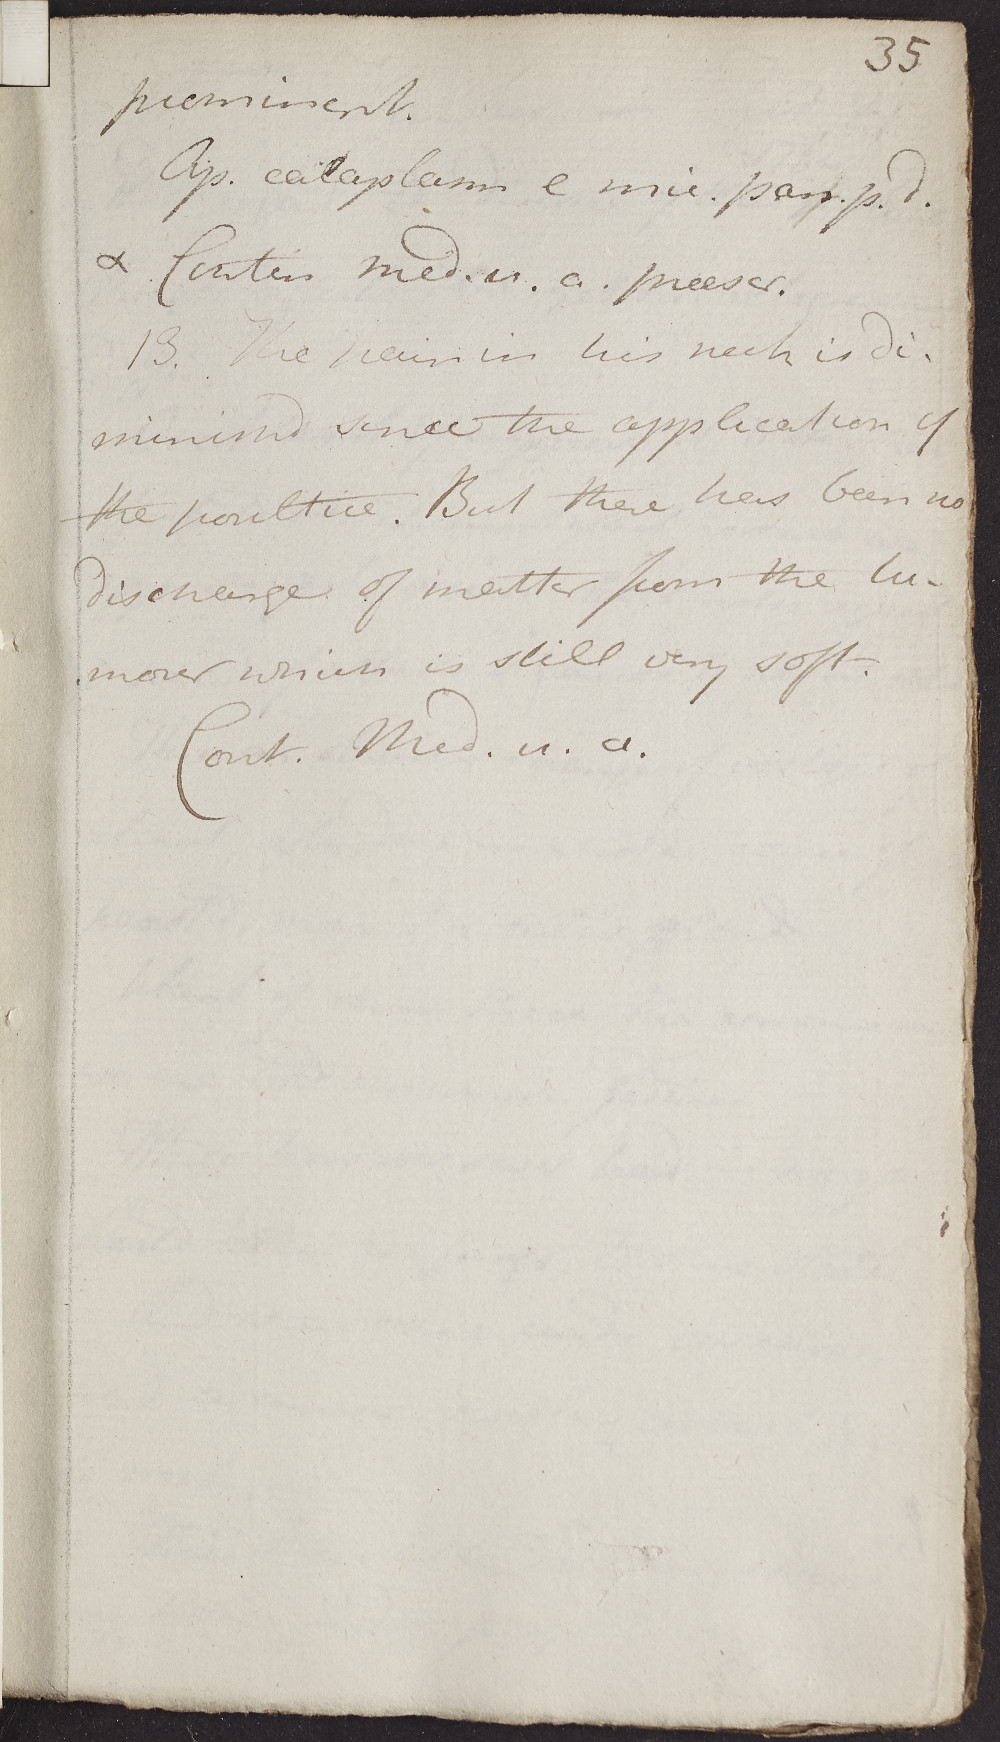 35
prominent.
Ap. cataplasm e mic. pan. p. d.
& Contin med. u. a. præscr.
13. The pain in his neck is di-
minind since the application of
the poultice. But there has been no
discharge of matter from the tu-
mour which is still very soft.
Cont. Med. u. a.